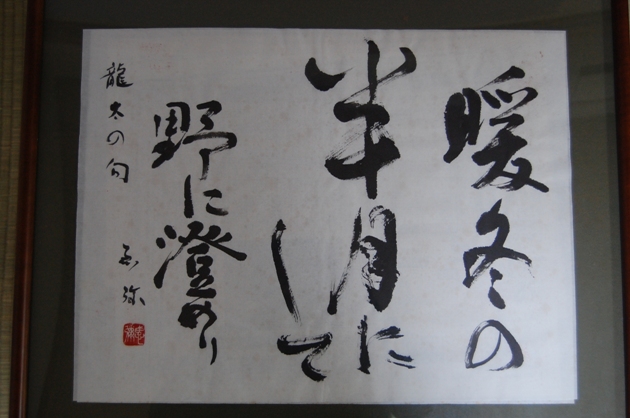 暖冬の
半月に
して
野に澄めり
龍太の句